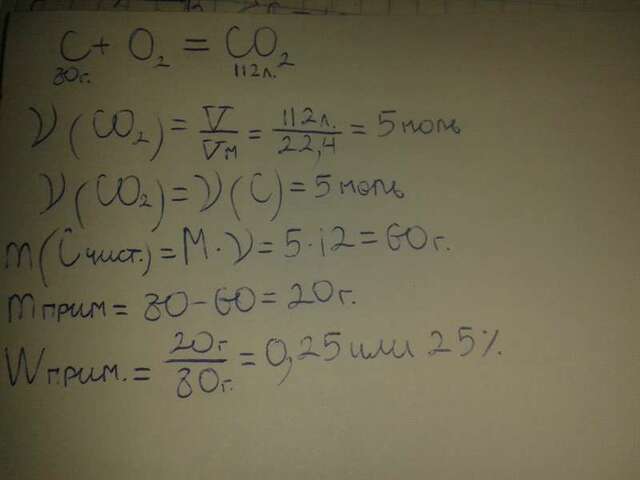 C + O₂ = CO₂
80г. 112л.
ν(CO₂) = V/Vм = 112л./22,4 = 5 моль
ν(CO₂) = ν(C) = 5 моль
m(C чист.) = M·ν = 5·12 = 60г.
m прим = 80-60 = 20г.
W прим. = 20г/80г. = 0,25 или 25%.